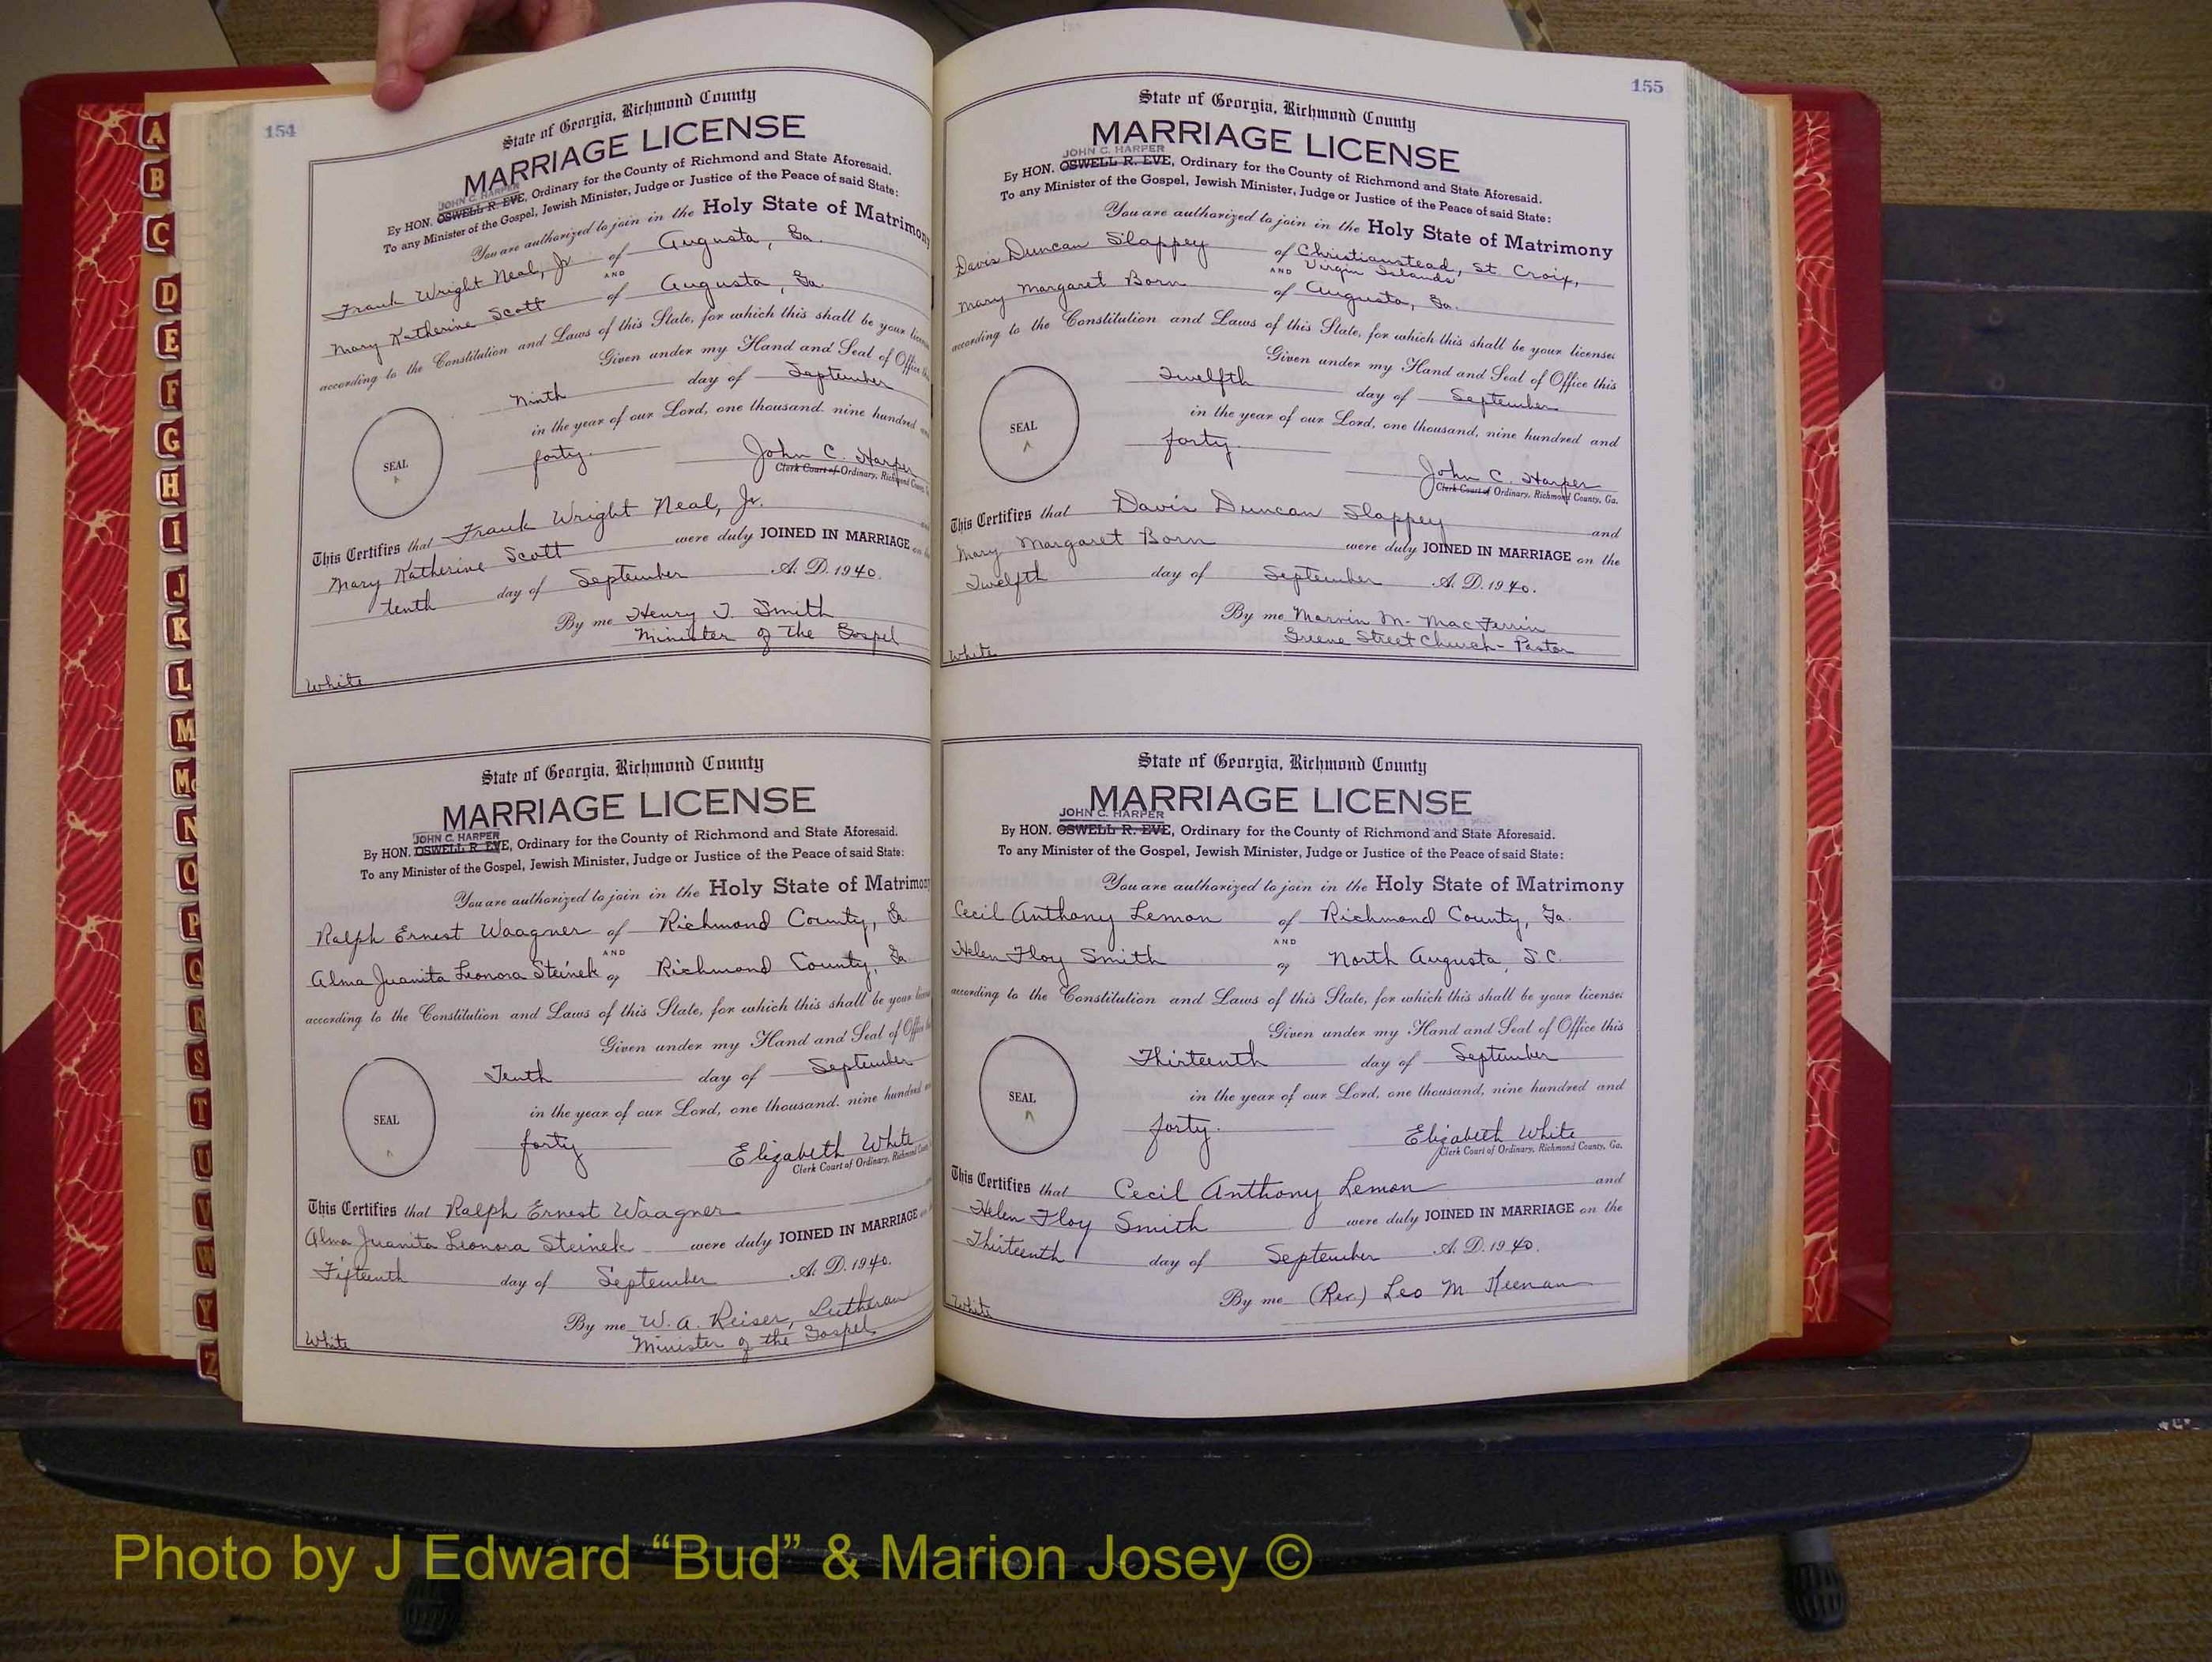 154
State of Georgia, Richmond County
MARRIAGE LICENSE
JOHN C. HARPER
By HON. OSWELL R. EVE, Ordinary for the County of Richmond and State Aforesaid.
To any Minister of the Gospel, Jewish Minister, Judge or Justice of the Peace of said State:
You are authorized to join in the Holy State of Matrimony
Frank Wright Neal, Jr of Augusta, Ga.
AND
Mary Katherine Scott of Augusta, Ga.
according to the Constitution and Laws of this State, for which this shall be your
Given under my Hand and Seal of Office
Ninth day of September
in the year of our Lord, one thousand, nine hundred
SEAL
forty.
John C. Harper
Clerk Court of Ordinary, Richmond County,
This Certifies that Frank Wright Neal, Jr.
Mary Katherine Scott were duly JOINED IN MARRIAGE on
tenth day of September A. D. 1940.
By me Henry J. Smith
Minister of the Gospel
White
State of Georgia, Richmond County
MARRIAGE LICENSE
JOHN C. HARPER
By HON. OSWELL R. EVE, Ordinary for the County of Richmond and State Aforesaid.
To any Minister of the Gospel, Jewish Minister, Judge or Justice of the Peace of said State:
You are authorized to join in the Holy State of Matrimony
Ralph Ernest Waagner of Richmond County, Ga
AND
Alma Juanita Leonora Steinek of Richmond County, Ga.
according to the Constitution and Laws of this State, for which this shall be your
Given under my Hand and Seal of Office
Tenth day of September
in the year of our Lord, one thousand, nine hundred
SEAL
forty
Elizabeth White
Clerk Court of Ordinary, Richmond
This Certifies that Ralph Ernest Waagner
Alma Juanita Leonora Steinek were duly JOINED IN MARRIAGE
Fifteenth day of September A. D. 1940.
By me W. A. Reiser, Lutheran
Minister of the Gospel
White
155
State of Georgia, Richmond County
MARRIAGE LICENSE
JOHN C. HARPER
By HON. OSWELL R. EVE, Ordinary for the County of Richmond and State Aforesaid.
To any Minister of the Gospel, Jewish Minister, Judge or Justice of the Peace of said State:
You are authorized to join in the Holy State of Matrimony
Davis Duncan Slappey of Christianstead, St. Croix,
AND Virgin Islands
Mary Margaret Born of Augusta, Ga.
according to the Constitution and Laws of this State, for which this shall be your license:
Given under my Hand and Seal of Office this
Twelfth day of September
in the year of our Lord, one thousand, nine hundred and
SEAL
forty.
John C. Harper
Clerk Court of Ordinary, Richmond County, Ga.
This Certifies that Davis Duncan Slappey and
Mary Margaret Born were duly JOINED IN MARRIAGE on the
Twelfth day of September A. D. 1940.
By me Marvin M. MacFerrin
Greene Street Church - Pastor
White
State of Georgia, Richmond County
MARRIAGE LICENSE
JOHN C. HARPER
By HON. OSWELL R. EVE, Ordinary for the County of Richmond and State Aforesaid.
To any Minister of the Gospel, Jewish Minister, Judge or Justice of the Peace of said State:
You are authorized to join in the Holy State of Matrimony
Cecil Anthony Lemon of Richmond County, Ga.
AND
Helen Floy Smith of North Augusta, S.C.
according to the Constitution and Laws of this State, for which this shall be your license:
Given under my Hand and Seal of Office this
Thirteenth day of September
in the year of our Lord, one thousand, nine hundred and
SEAL
forty.
Elizabeth White
Clerk Court of Ordinary, Richmond County, Ga.
This Certifies that Cecil Anthony Lemon and
Helen Floy Smith were duly JOINED IN MARRIAGE on the
Thirteenth day of September A. D. 1940.
By me (Rev.) Leo M Keenan
White
A
B
C
D
E
F
G
H
I
J
K
L
M
Mc
N
O
P
Q
R
S
T
U
V
W
Y
Z
Photo by J Edward “Bud” & Marion Josey ©